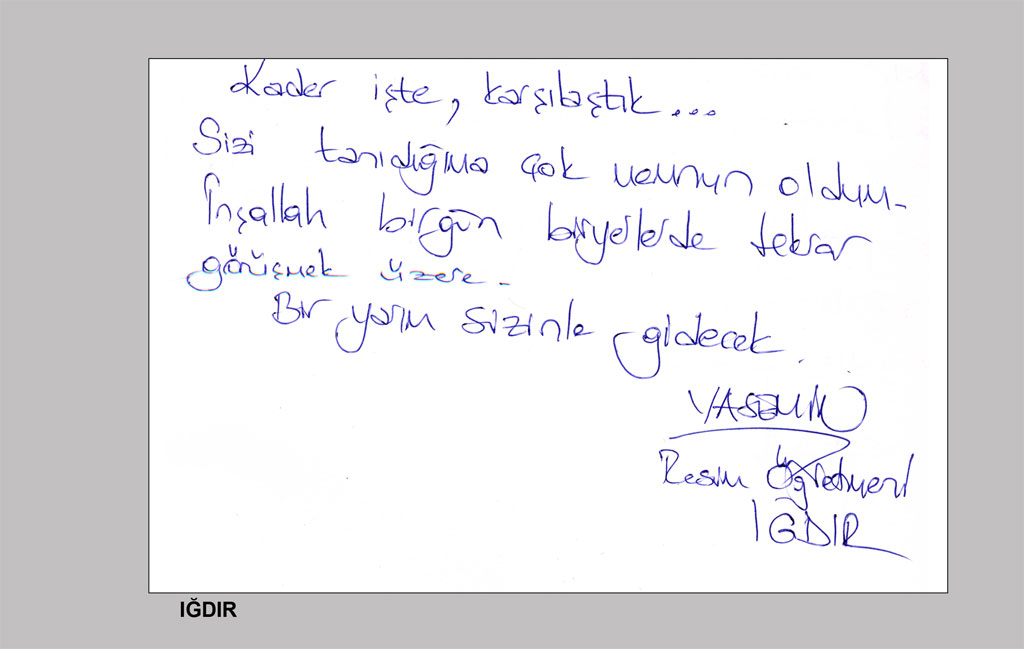 Kader işte, karşılaştık...
Sizi tanıdığıma çok memnun oldum.
İnşallah birgün biryerlerde tekrar
görüşmek üzere.
Bir yarım sizinle gidecek.
YASEMİN
Resim Öğretmeni
IĞDIR
IĞDIR